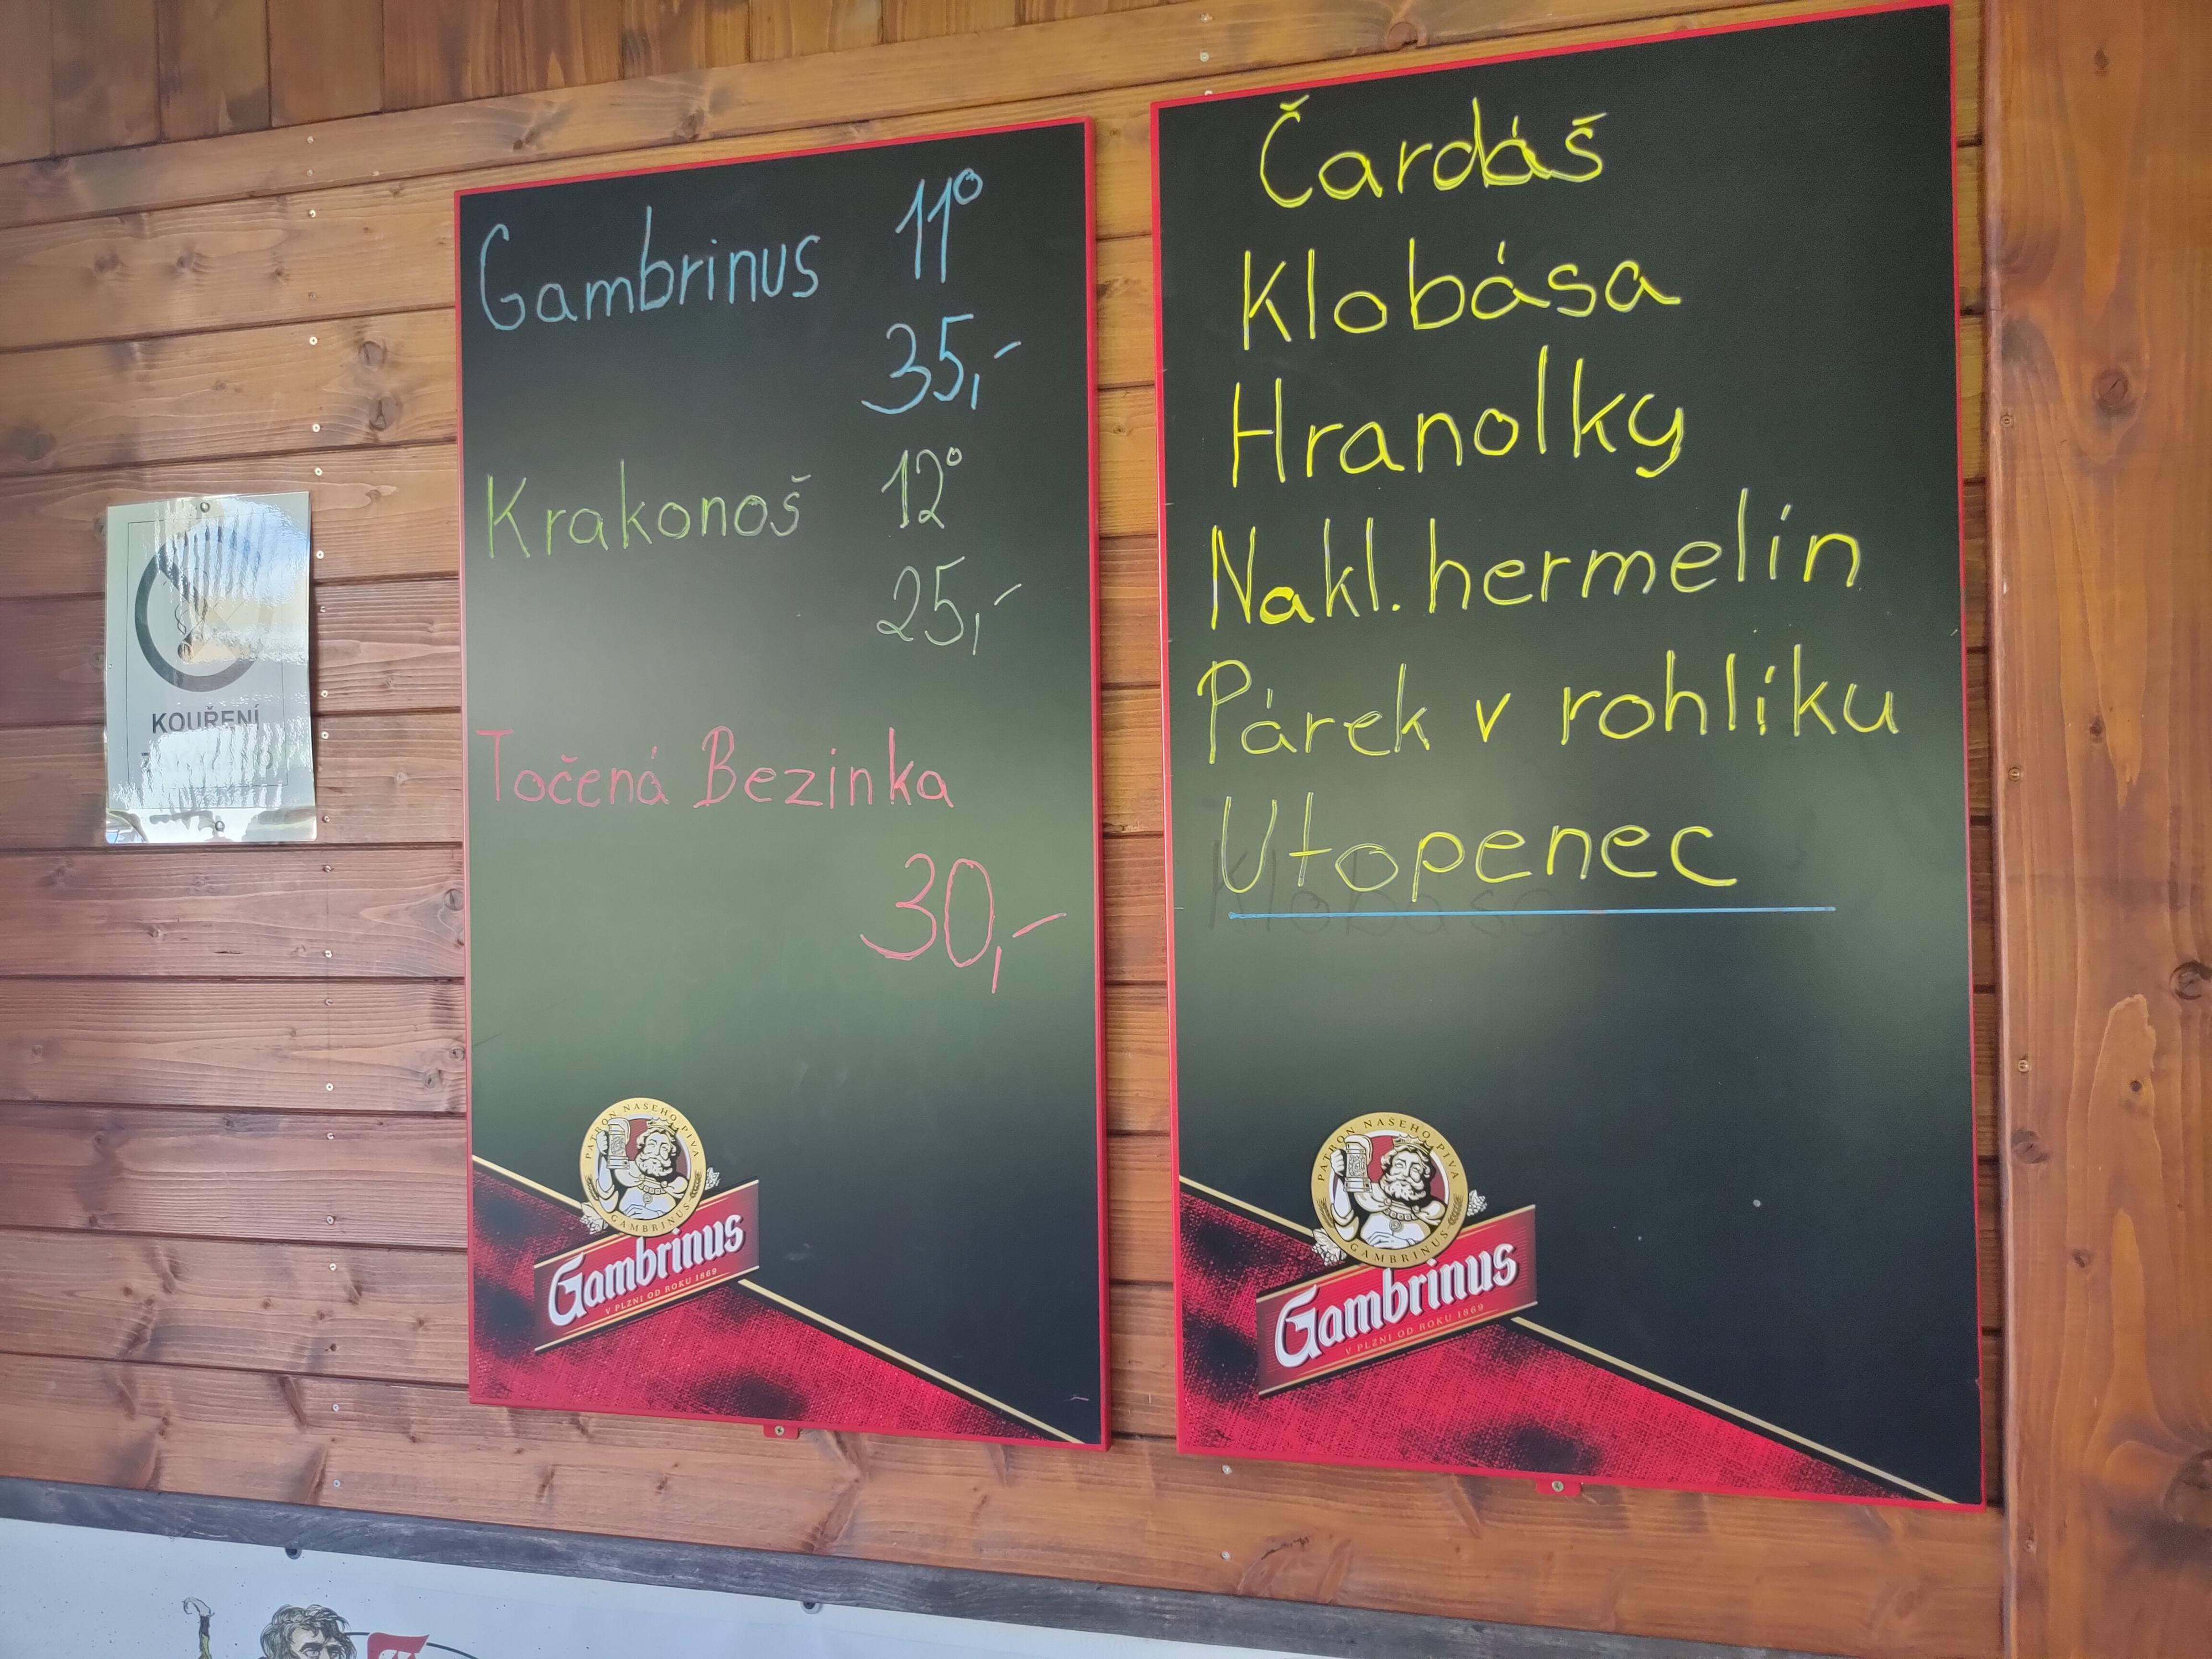 Gambrinus 11°
35,-
Krakonoš 12°
25,-
Točená Bezinka
30,-
PATRON NAŠEHO PIVA
GAMBRINUS
Gambrinus
V PLZNI OD ROKU 1869
Čardáš
Klobása
Hranolky
Nakl. hermelín
Párek v rohlíku
Utopenec
Klobása
PATRON NAŠEHO PIVA
GAMBRINUS
Gambrinus
V PLZNI OD ROKU 1869
KOUŘENÍ